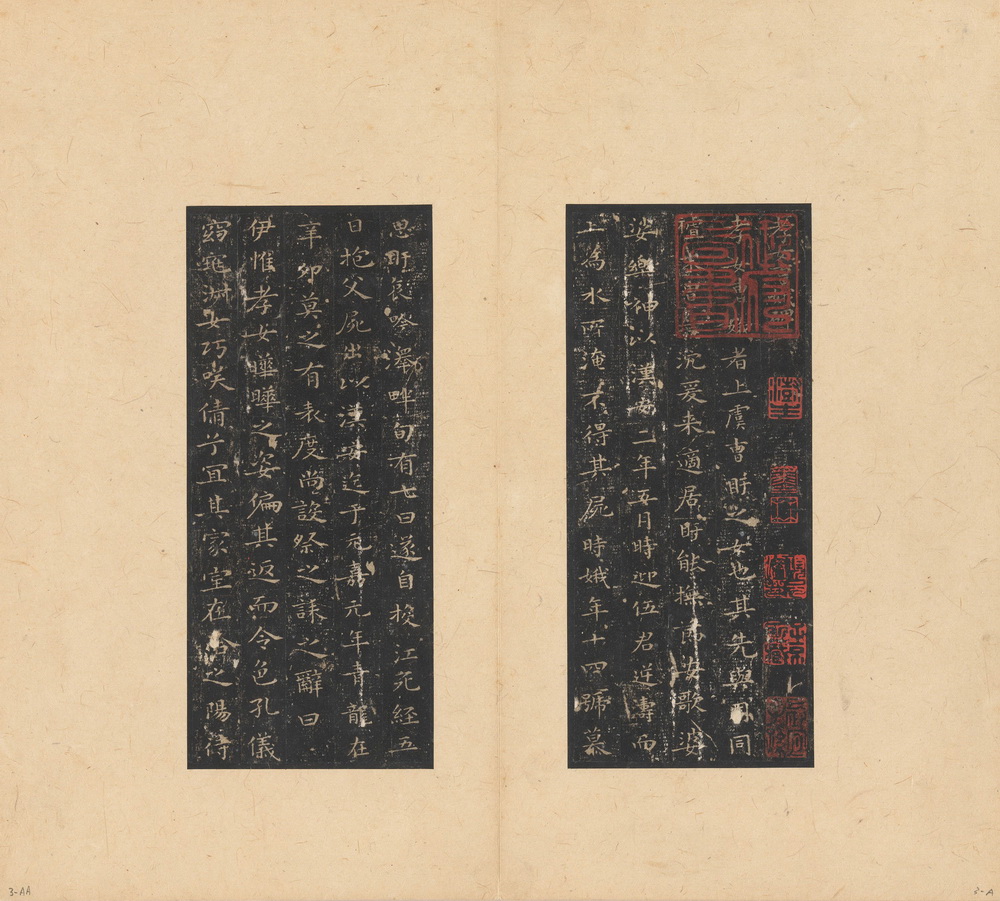 孝女曹娥碑
孝女曹娥者上虞曹盱之女也其先與周同
沉爰来適居盱能撫節安歌婆
娑樂神以漢安二年五月時迎伍君逆濤而
上為水所淹不得其屍時娥年十四號慕
思盱哀吟澤畔旬有七日遂自投江死経五
日抱父屍出以漢安迄于元嘉元年青龍在
辛卯莫之有表度尚設祭之誄之辭曰
伊惟孝女曄曄之姿偏其返而令色孔儀
窈窕淑女巧咲倩兮冝其家室在洽之陽待
3-AA
3-A